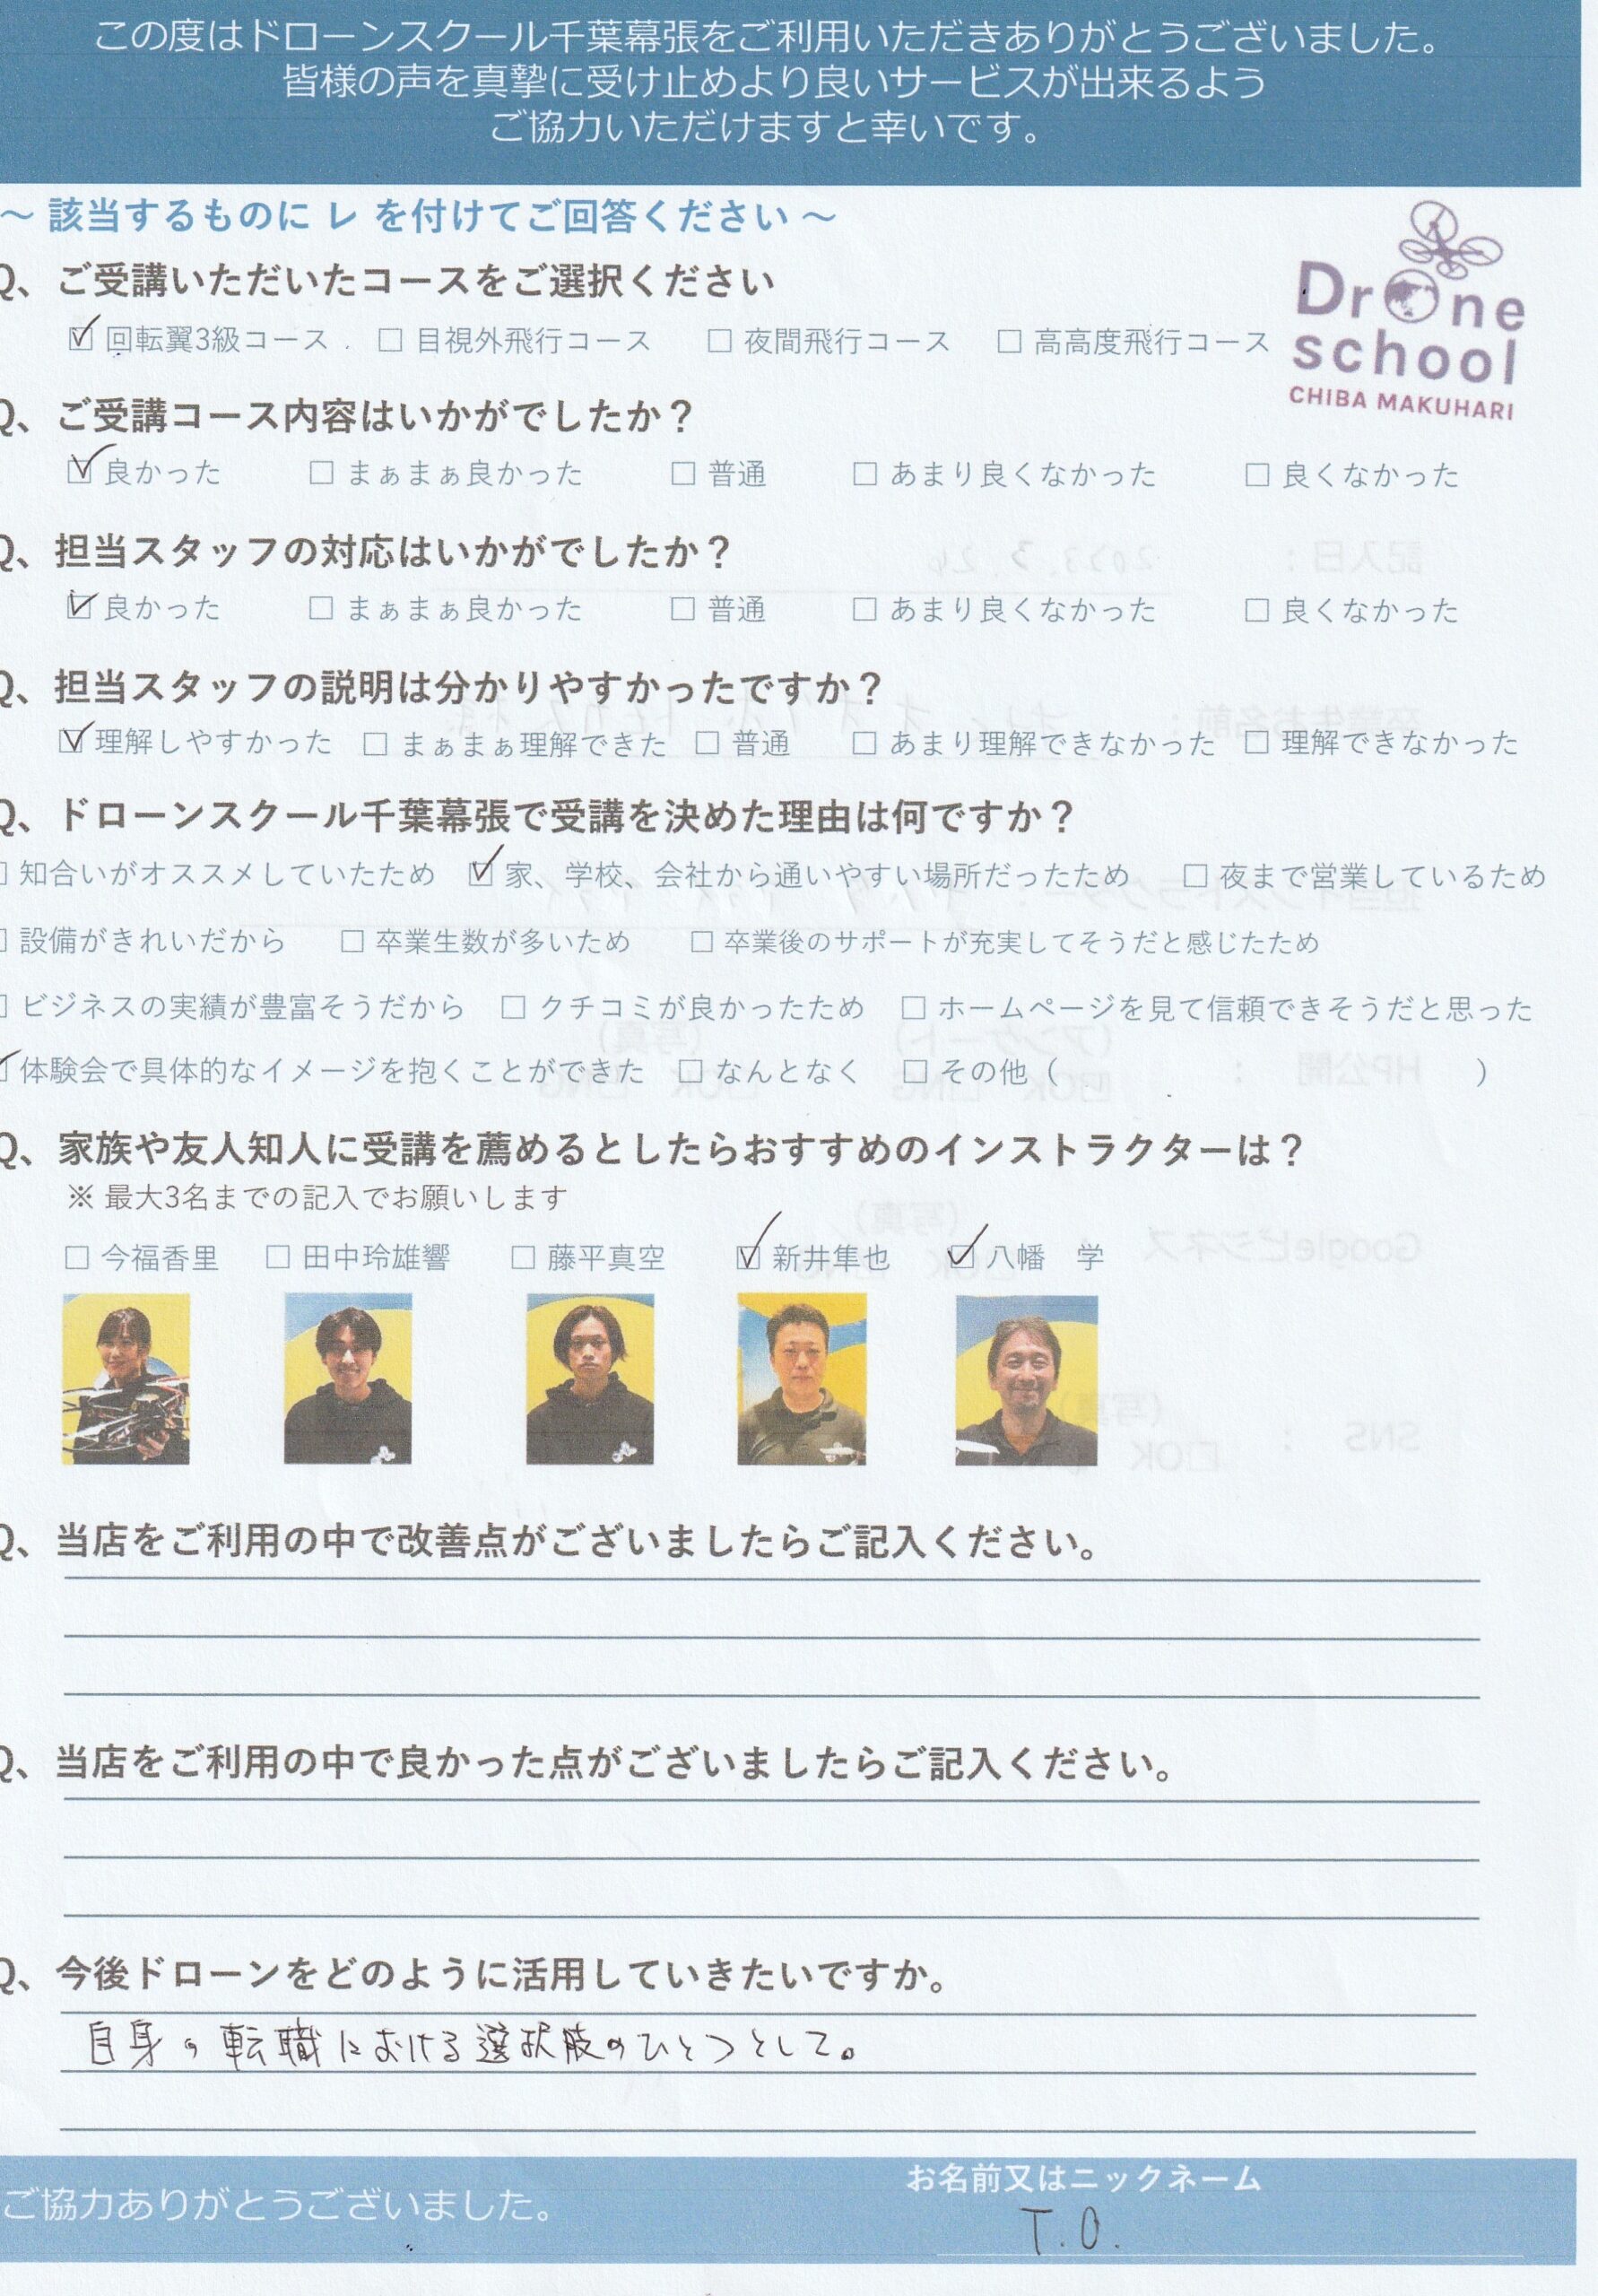 この度はドローンスクール千葉幕張をご利用いただきありがとうございました。
皆様の声を真摯に受け止めより良いサービスが出来るよう
ご協力いただけますと幸いです。
～ 該当するものに レ を付けてご回答ください ～
Drone
school
CHIBA MAKUHARI
Q、ご受講いただいたコースをご選択ください
☑ 回転翼3級コース □ 目視外飛行コース □ 夜間飛行コース □ 高高度飛行コース
Q、ご受講コース内容はいかがでしたか？
☑ 良かった □ まぁまぁ良かった □ 普通 □ あまり良くなかった □ 良くなかった
Q、担当スタッフの対応はいかがでしたか？
☑ 良かった □ まぁまぁ良かった □ 普通 □ あまり良くなかった □ 良くなかった
Q、担当スタッフの説明は分かりやすかったですか？
☑ 理解しやすかった □ まぁまぁ理解できた □ 普通 □ あまり理解できなかった □ 理解できなかった
Q、ドローンスクール千葉幕張で受講を決めた理由は何ですか？
□ 知合いがオススメしていたため ☑ 家、学校、会社から通いやすい場所だったため □ 夜まで営業しているため
□ 設備がきれいだから □ 卒業生数が多いため □ 卒業後のサポートが充実してそうだと感じたため
□ ビジネスの実績が豊富そうだから □ クチコミが良かったため □ ホームページを見て信頼できそうだと思った
☑ 体験会で具体的なイメージを抱くことができた □ なんとなく □ その他（ ）
Q、家族や友人知人に受講を薦めるとしたらおすすめのインストラクターは？
※ 最大3名までの記入でお願いします
□ 今福香里 □ 田中玲雄響 □ 藤平真空 ☑ 新井隼也 ☑ 八幡 学
Q、当店をご利用の中で改善点がございましたらご記入ください。
Q、当店をご利用の中で良かった点がございましたらご記入ください。
Q、今後ドローンをどのように活用していきたいですか。
自身の転職における選択肢のひとつとして。
ご協力ありがとうございました。
お名前又はニックネーム
T.O.